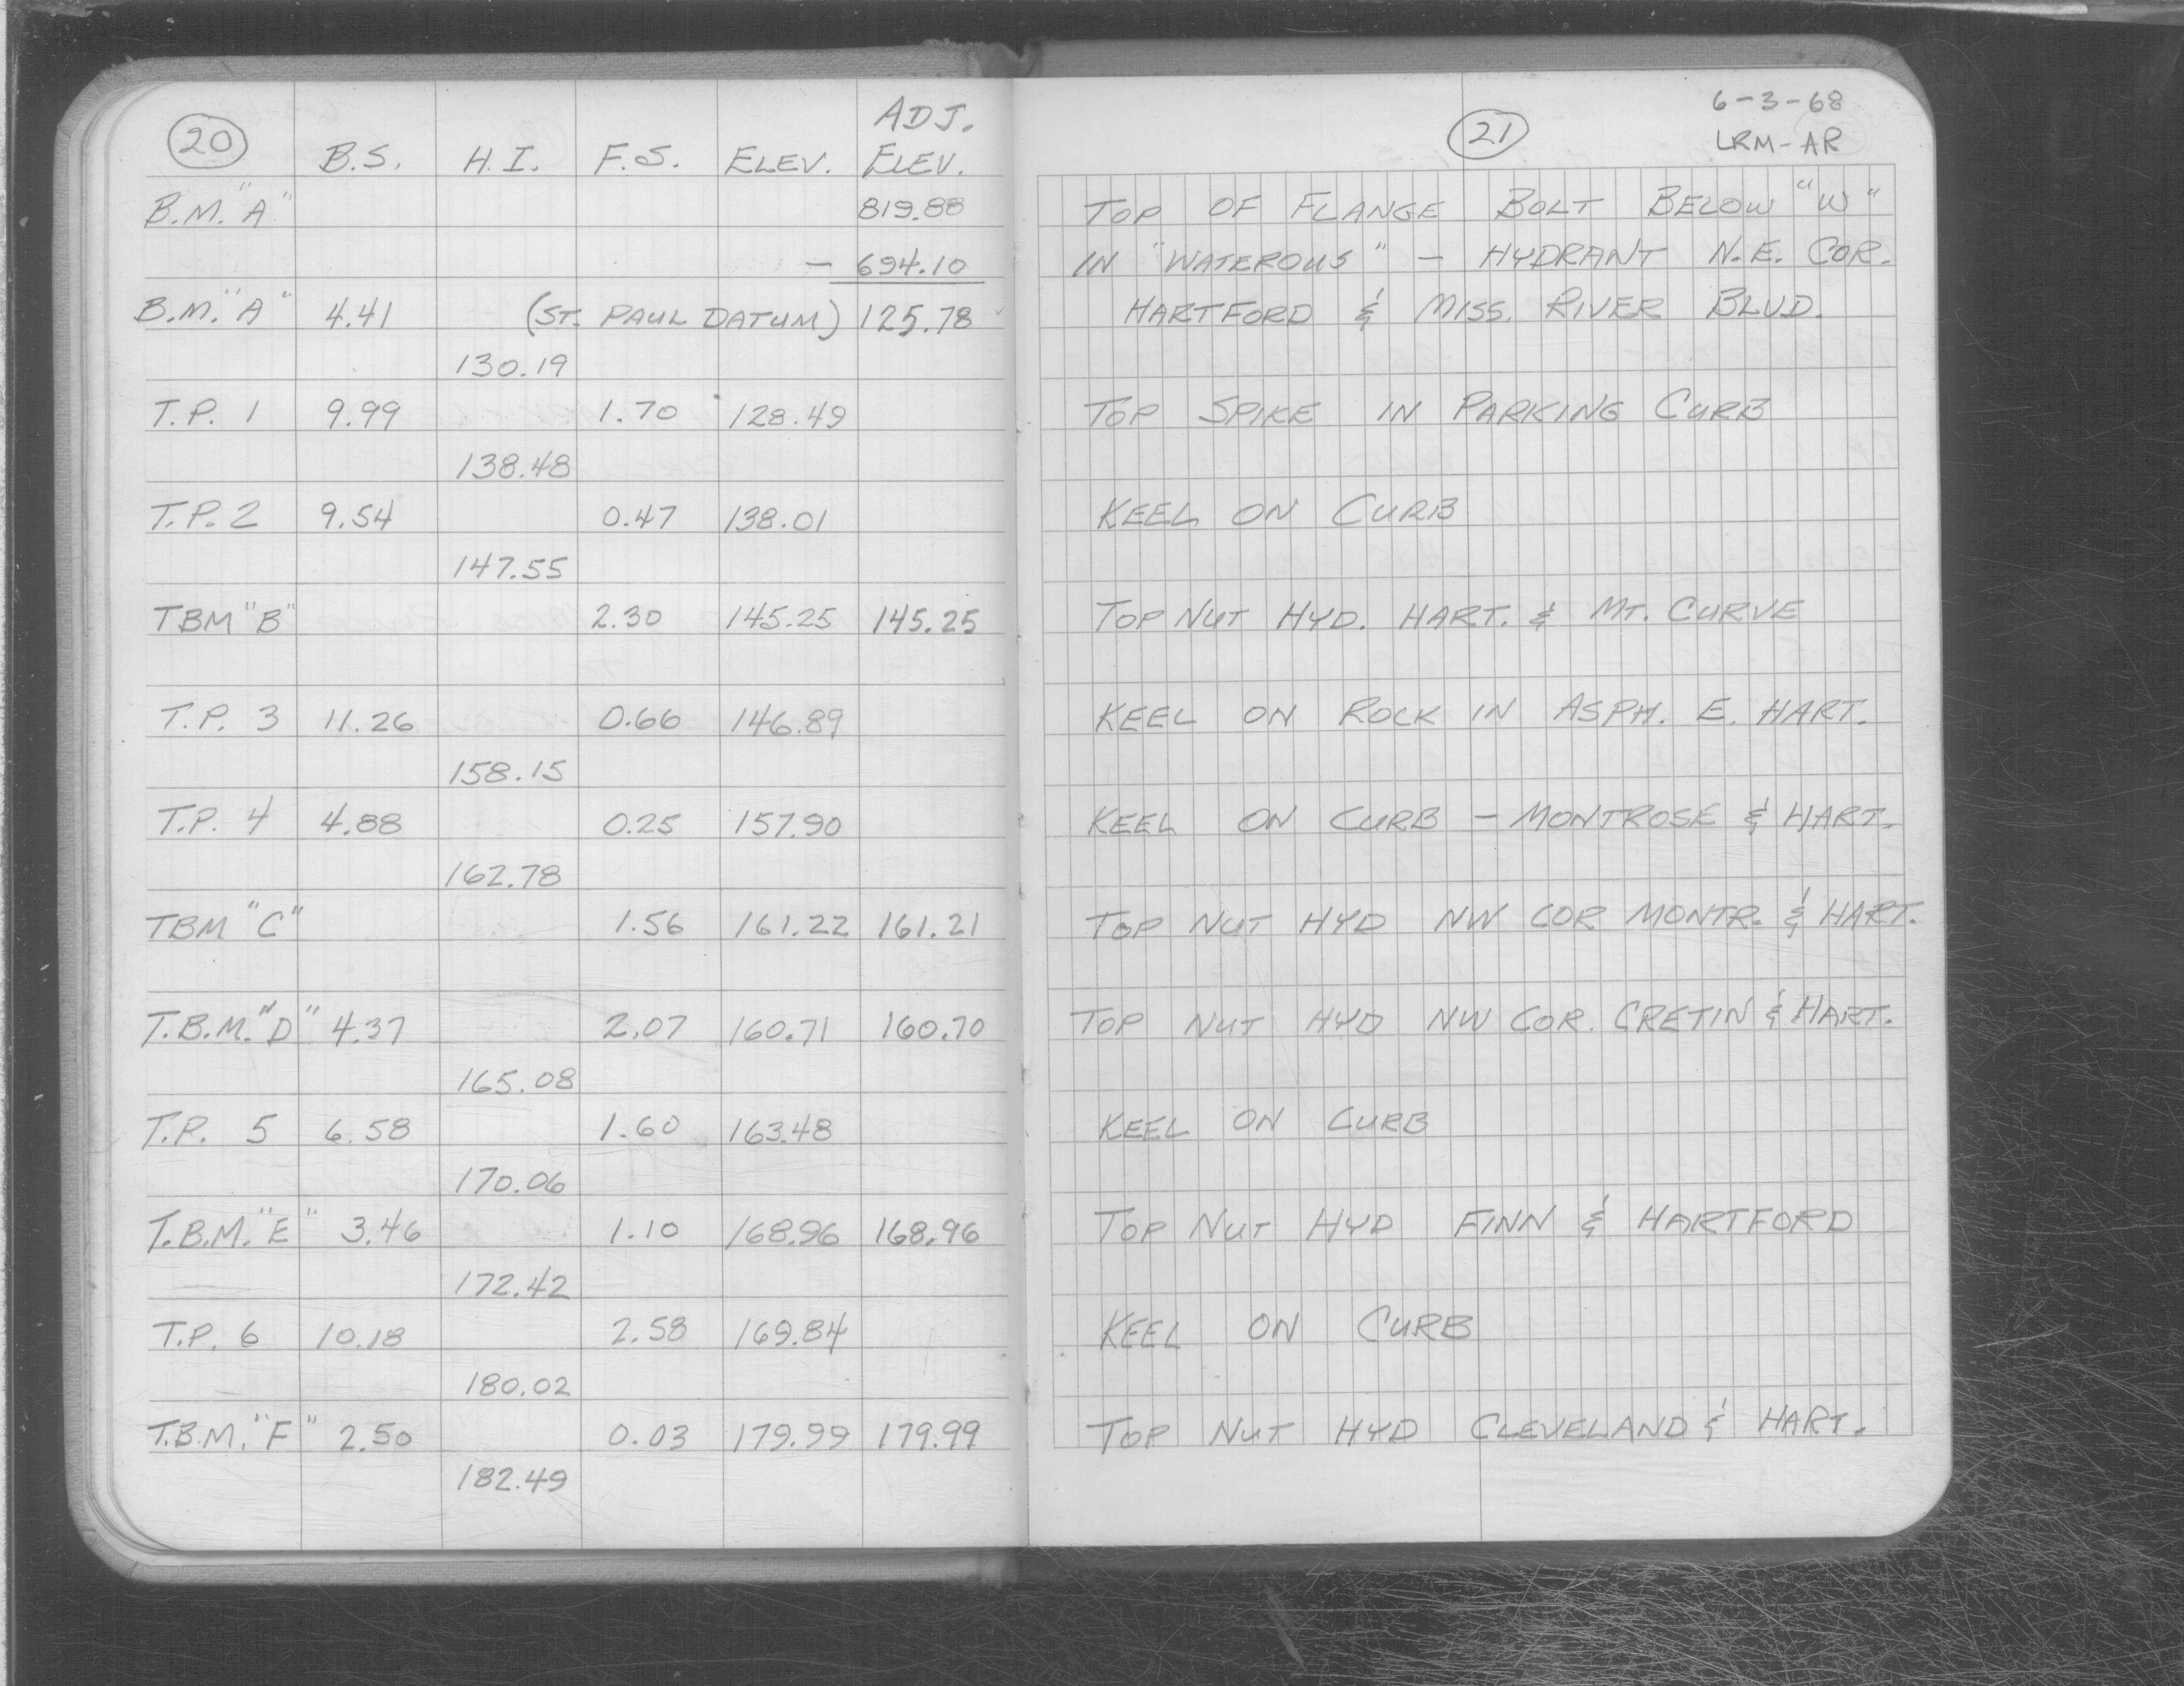 20 B.S. H.I. F.S. ELEV. ADJ. ELEV.
B.M. "A" 819.88
- 694.10
B.M. "A" 4.41 (ST. PAUL DATUM) 125.78
130.19
T.P. 1 9.99 1.70 128.49
138.48
T.P. 2 9.54 0.47 138.01
147.55
TBM "B" 2.30 145.25 145.25
T.P. 3 11.26 0.66 146.89
158.15
T.P. 4 4.88 0.25 157.90
162.78
TBM "C" 1.56 161.22 161.21
T.B.M. "D" 4.37 2.07 160.71 160.70
165.08
T.P. 5 6.58 1.60 163.48
170.06
T.B.M. "E" 3.46 1.10 168.96 168.96
172.42
T.P. 6 10.18 2.58 169.84
180.02
T.B.M. "F" 2.50 0.03 179.99 179.99
182.49
6-3-68
21 LRM-AR
TOP OF FLANGE BOLT BELOW "W"
IN "WATEROUS" - HYDRANT N.E. COR.
HARTFORD & MISS. RIVER BLVD.
TOP SPIKE IN PARKING CURB
KEEL ON CURB
TOP NUT HYD. HART. & MT. CURVE
KEEL ON ROCK IN ASPH. E. HART.
KEEL ON CURB - MONTROSE & HART.
TOP NUT HYD NW COR MONTR. & HART.
TOP NUT HYD NW COR. CRETIN & HART.
KEEL ON CURB
TOP NUT HYD FINN & HARTFORD
KEEL ON CURB
TOP NUT HYD CLEVELAND & HART.